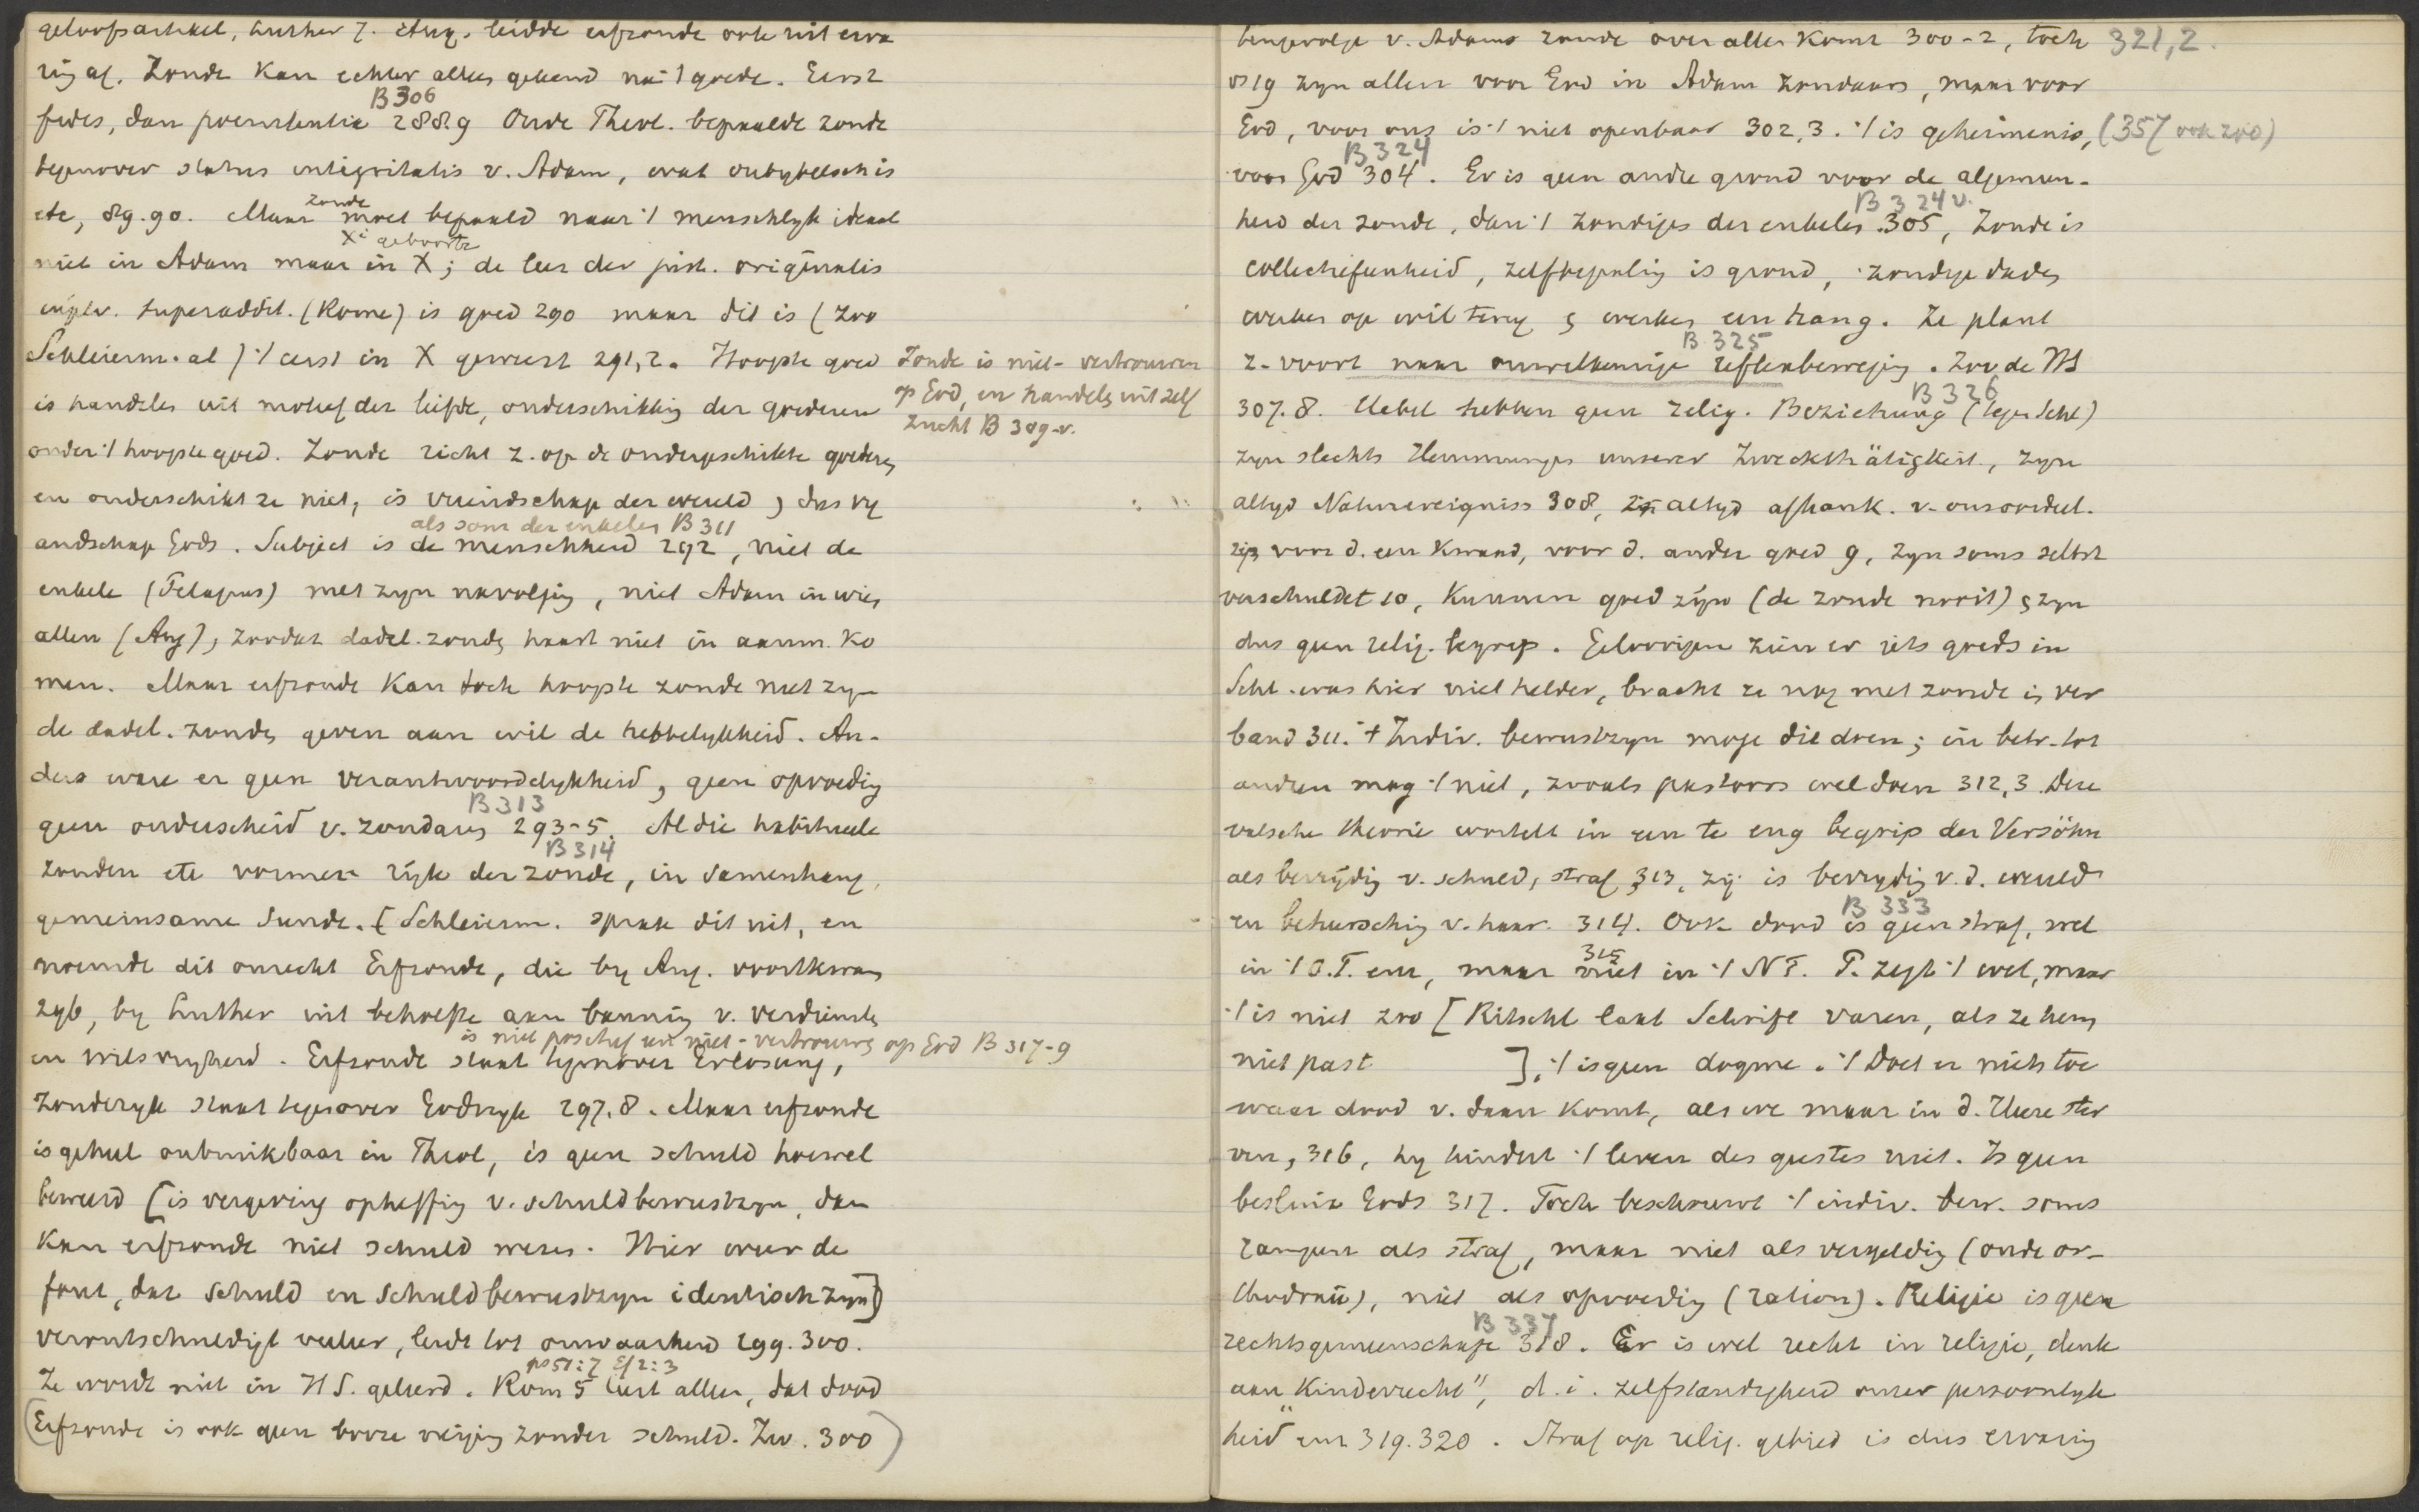 geloofsartikel, Luther z. Aug. leidde erfzonde ook uit erva
ring af. Zonde kan echter alleen gekend na 't goede. Eerst
B 306
fides, dan poenitentia 288.9 Oude Theol. bepaalde zonde
tegenover status integritatis v. Adam, wat onbybelsch is
etc, 89.90. Maar zonde moet bepaald naar 't menschlyk ideaal
X's geboorte
niet in Adam maar in X; de leer der just. originalis
superaddit. (Rome) is goed 290 maar dit is (zoo
Schleierm. al) 't eerst in X geweest 291,2. Hoogste goed
is handelen uit motief der liefde, onderschikking der goederen
onder 't hoogste goed. Zonde richt z. op de ondergeschikte goederen
en onderschikt ze niet, is vriendschap der wereld, dus vy
als som der enkelen B 311
andschap Gods. Subject is de menschheid 292, niet de
enkele (Pelagius) met zyn navolging, niet Adam in wien
allen (Aug), zoodat dadel. zonden haast niet in aanm. ko
men. Maar erfzonde kan toch hoogste zonde niet zyn
de dadel. zonden geven aan wil de hebbelykheid. An-
ders ware er geen verantwoordelykheid, geen opvoeding
B 313
geen onderscheid v. zondaars 293-5. Al die habitueele
B 314
zonden etc vormen ryk der zonde, in samenhang,
gemeinsame Sünde. [Schleierm. sprak dit uit, en
noemde dit onrecht Erfzonde, die by Aug. voortkwam
296, by Luther uit behoefte aan banning v. verdiensten
is niet positief een niet-vertrouwen op God B 317-9
en wilsvryheid. Erfzonde staat tegenover Erlösung,
Zonderyk staat tegenover Godsryk 297.8. Maar erfzonde
is geheel onbruikbaar in Theol, is geen schuld hoewel
beweerd [is vergeving opheffing v. schuldbewustzyn, dan
kan erfzonde niet schuld wezen. Hier weer de
fout, dat schuld en schuldbewustzyn identisch zyn]
verontschuldigt veeleer, leidt tot onwaarheid 299.300.
ps 51:7 Ef 2:3
Ze wordt niet in H S. geleerd. Rom 5 leert alleen, dat dood
(Erfzonde is ook geen booze neiging zonder schuld. Zw. 300)
Zonde is niet-vertrouwen
op God, en handelen uit zelf
zucht B 309-v.
tengevolge v. Adams zonde over allen komt 300-2, toch 321,2.
vs 19 zyn allen voor God in Adam zondaars, maar voor
God, voor ons is 't niet openbaar 302,3. 't is geheimenis, (357 ook zoo)
B 324
voor God 304. Er is geen andre grond voor de algemeen-
B 324 v.
heid der zonde, dan 't zondigen der enkelen 305, Zonde is
collectiefeenheid, zelfbepaling is grond, zondige daden
werken op wil terug & werken een hang. Ze plant
B 325
z. voort naar onwillekeurige reflexbeweging. Zoo de HS
B 326
307.8. Uebel hebben geen relig. Beziehung (tegen Schl)
zyn slechts Hemmungen unserer Zweckthätigkeit, zyn
altyd Naturereigniss 308, zijn altyd afhank. v. ons oordeel.
zijn voor d. een kwaad, voor d. ander goed 9, zyn soms selbst
verschuldet 10, kunnen goed zijn (de zonde nooit) & zyn
dus geen relig. begrip. Geloovigen zien er iets goeds in
Schl. was hier niet helder, bracht ze nog met zonde in ver
band 311. 't Indiv. bewustzyn moge die doen; in betr. tot
anderen mag 't niet, zooals pastoors wel doen 312,3. Deze
valsche theorie wortelt in een te eng begrip der Versöhn
als bevrijding v. schuld, straf 313, zij is bevryding v. d. wereld
B 333
en beheersching v. haar. 314. Ook dood is geen straf, wel
315
in 't O.T. een, maar niet in 't NT. P. zegt 't wel, maar
't is niet zoo [Ritschl laat Schrift varen, als ze hem
niet past ], 't is geen dogme. 't Doet er niets toe
waar dood v. daan komt, als we maar in d. Heere ster
ven, 316, hy hindert 't leven des geestes niet. Is geen
besluit Gods 317. Toch beschouwt 't indiv. bew. soms
rampen als straf, maar niet als vergelding (oude or-
thodoxie), niet als opvoeding (ration). Religie is geen
B 337
rechtsgemeenschap 318. Er is wel recht in religie, denk
aan "Kinderrecht", d. i. zelfstandigheid onzer persoonlyk
heid enz 319.320. Straf op relig. gebied is dus ervaring